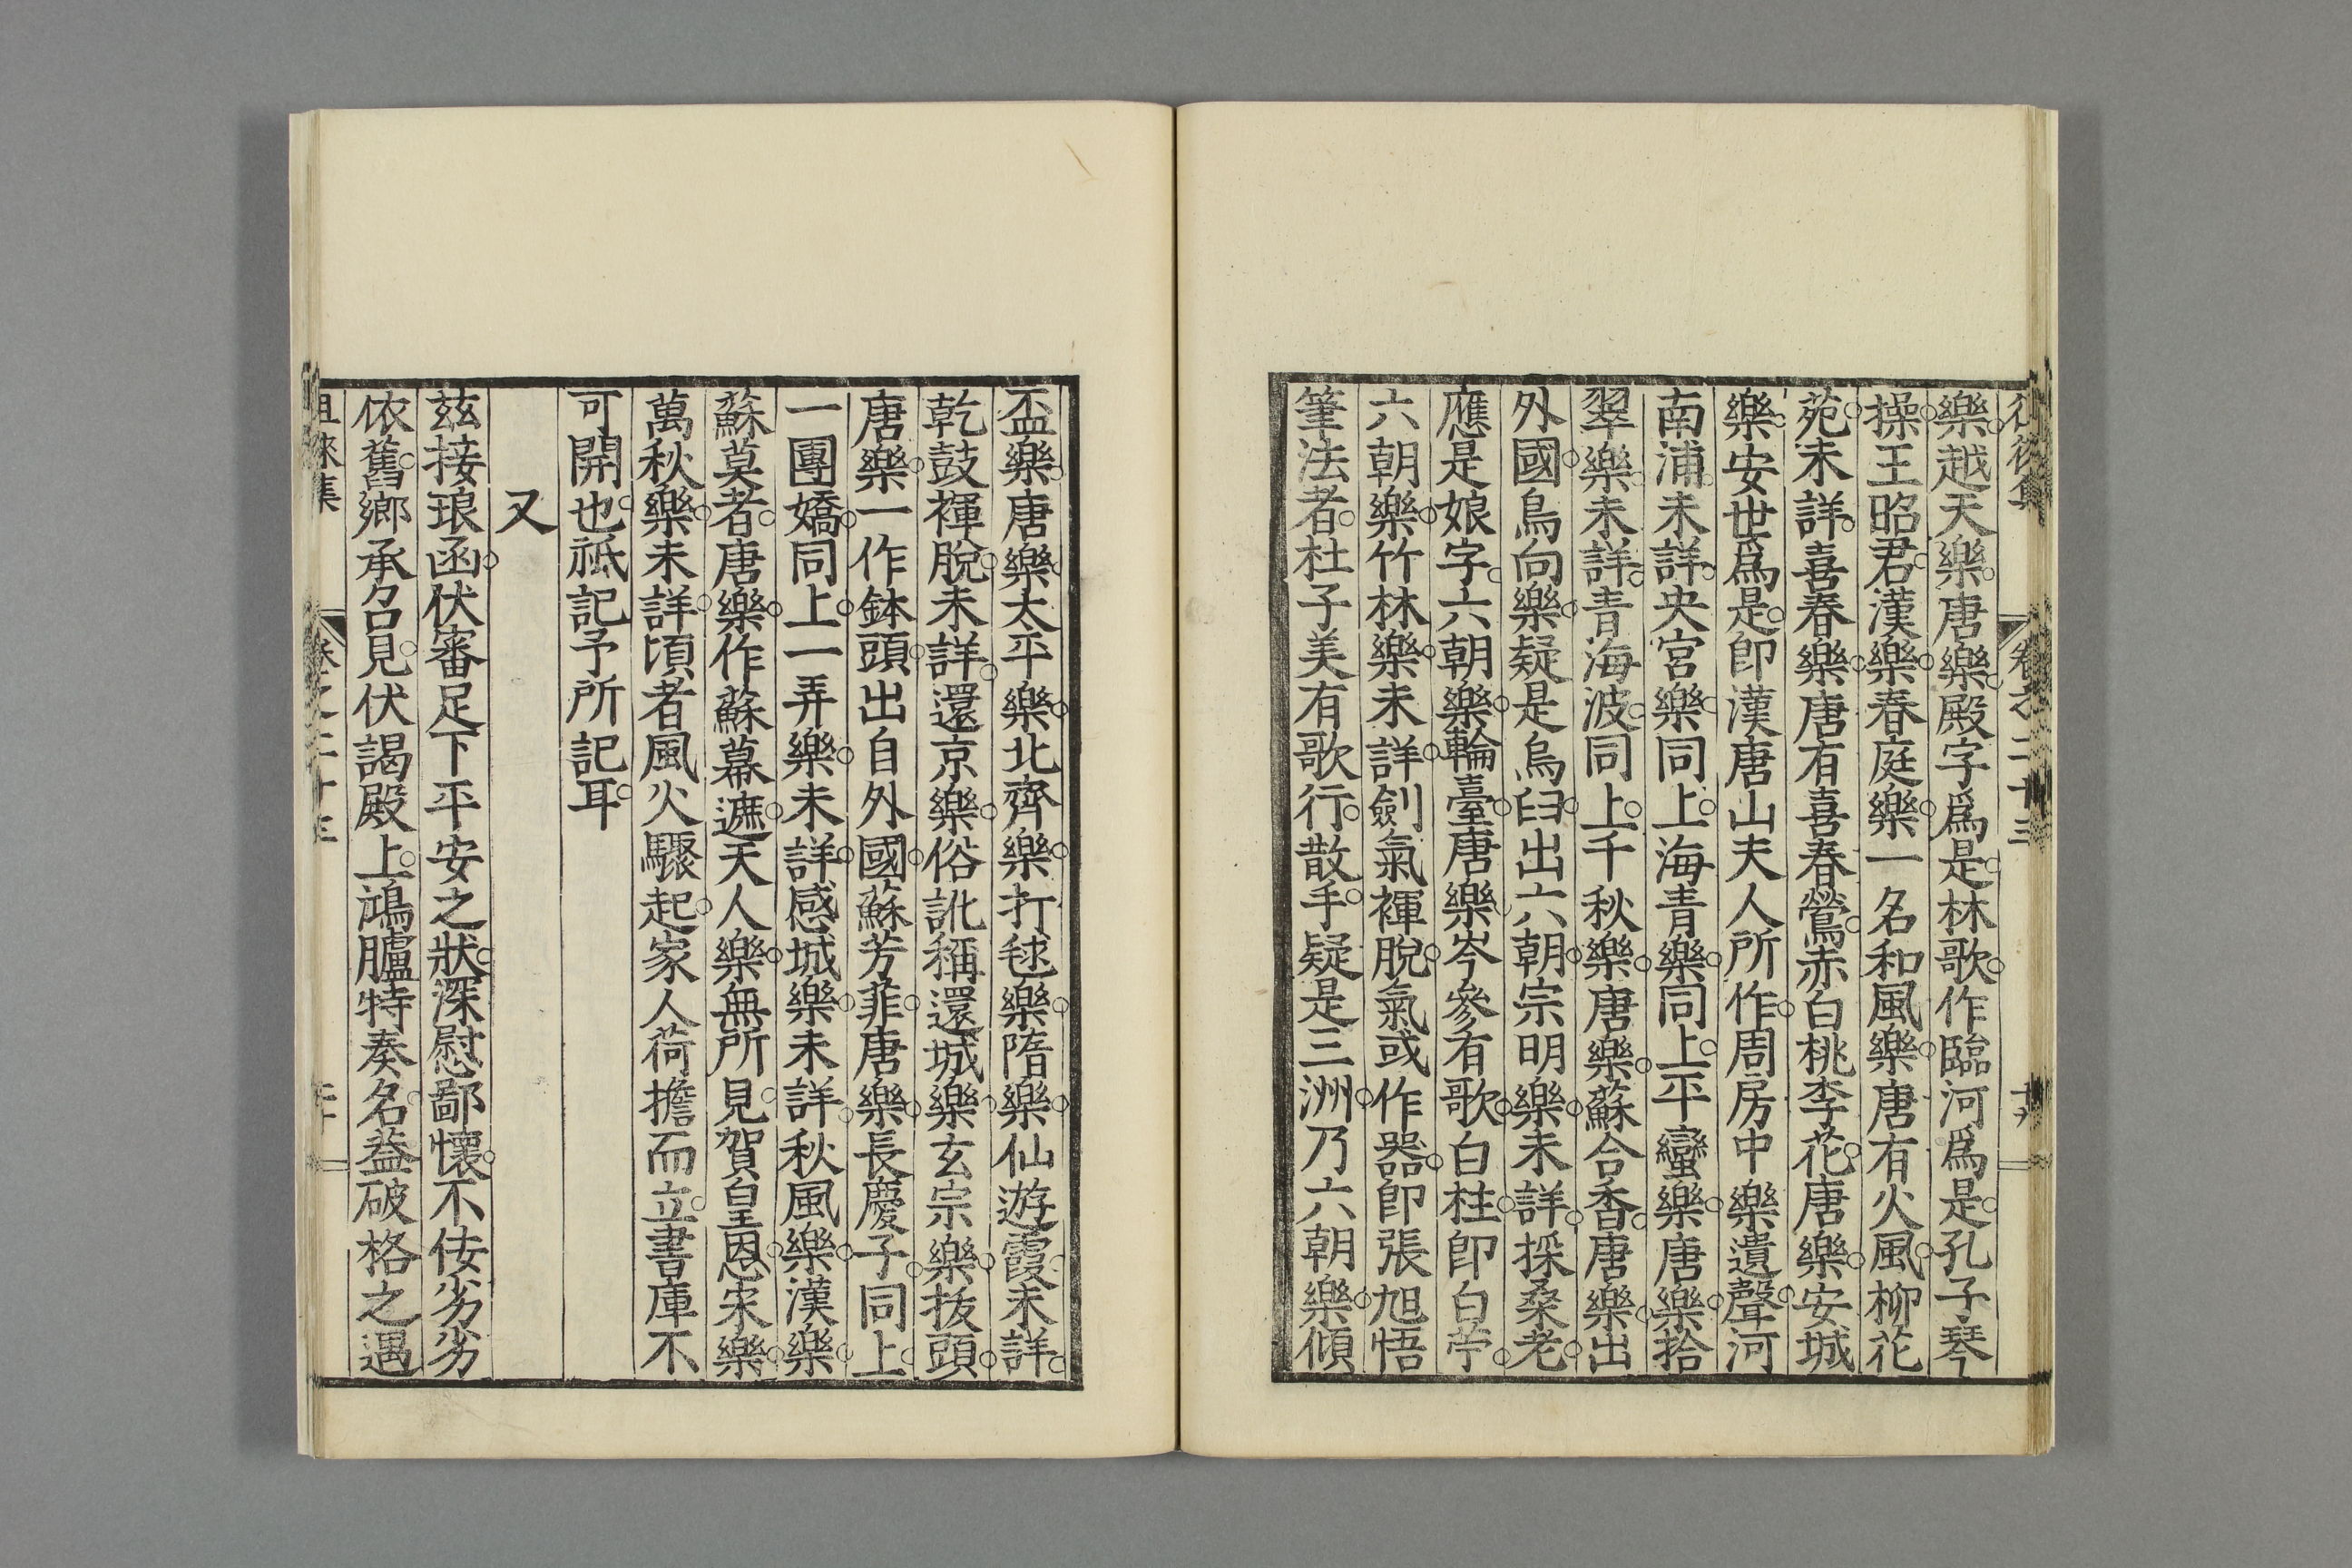 樂越天樂唐樂殿字爲是林歌作臨河爲是孔子琴
操王昭君漢樂春庭樂一名和風樂唐有火風柳花
苑未詳喜春樂唐有喜春鶯赤白桃李花唐樂安城
樂安世爲是卽漢唐山夫人所作周房中樂遺聲河
南浦未詳央宮樂同上海青樂同上平蠻樂唐樂拾
翠樂未詳青海波同上千秋樂唐樂蘇合香唐樂出
外國鳥向樂疑是烏臼出六朝宗明樂未詳採桑老
應是娘字六朝樂輪臺唐樂岑參有歌白柱卽白苧
六朝樂竹林樂未詳劍氣褌脫氣或作器卽張旭悟
筆法者杜子美有歌行散手疑是三洲乃六朝樂傾
盃樂唐樂太平樂北齊樂打毬樂隋樂仙遊霞未詳
乾鼓褌脫未詳還京樂俗訛稱還城樂玄宗樂拔頭
唐樂一作鉢頭出自外國蘇芳菲唐樂長慶子同上
一團嬌同上一弄樂未詳感城樂未詳秋風樂漢樂
蘇莫者唐樂作蘇幕遮天人樂無所見賀皇恩宋樂
萬秋樂未詳頃者風火驟起家人荷擔而立書庫不
可開也祇記予所記耳
又
茲接琅函伏審足下平安之狀深慰鄙懷不佞劣劣
依舊鄉承召見伏謁殿上鴻臚特奏名益破格之遇
徂徠集 卷之二十三